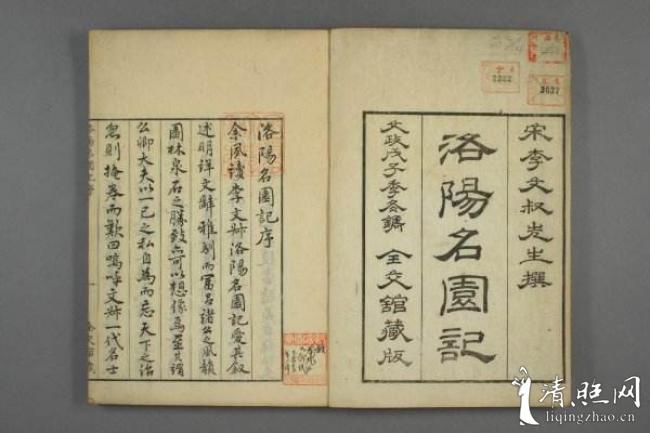 宋李文叔先生撰
洛陽名園記
文政戊子季冬鐫 全交館藏版
洛陽名園記序
余夙讀李文叔洛陽名園記愛其叙
述明詳文辭雅馴而富呂諸公之風韻
園林泉石之勝致亦可以想像焉至其謂
公卿大夫以一己之私自為而忘天下之治
忽則掩卷而歎曰嗚呼文叔一代名士
3632
清照网
liqingzhao.cn